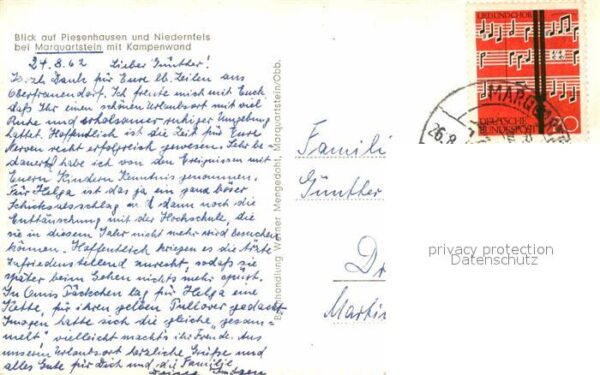 Blick auf Piesenhausen und Niedernfels
bei Marquartstein mit Kampenwand
24.8.62 Lieber Günther!
Hzl. Dank für Eure lb. Zeilen aus
Obertrauendorf. Ich freute mich mit Euch
daß Ihr einen schönen Urlaubsort mit viel
Ruhe und erholsamer ruhiger Umgebung
hattet. Hoffentlich ist die Zeit für Eure
Nerven recht erfolgreich gewesen. Sehr be-
dauert habe ich von den Ereignissen mit
Euern Kindern Kenntnis genommen.
Für Helga ist das ja ein ganz böser
Schicksalsschlag u. dann noch die
Enttäuschung mit der Hochschule, die
sie in diesem Jahr nicht mehr wird besuchen
können. Hoffentlich kriegen es die Ärzte
zufriedenstellend zurecht, sodaß sie
später beim Gehen nichts mehr spürt.
In Omis Päckchen lag für Helga eine
Kette, für ihren gelben Pullover gedacht
Imogen hatte sich die gleiche "gesam-
melt", vielleicht macht's ihr Freude. Aus
unserm Urlaubsort herzliche Grüße und
alles Gute für Dich und die Familie
Buchhandlung Werner Mengedoht, Marquartstein/Obb.
LIED UND CHOR
DEUTSCHE
BUNDESPOST
26.8.
Famili
Günther
Dr
Martin
privacy protection
Datenschutz